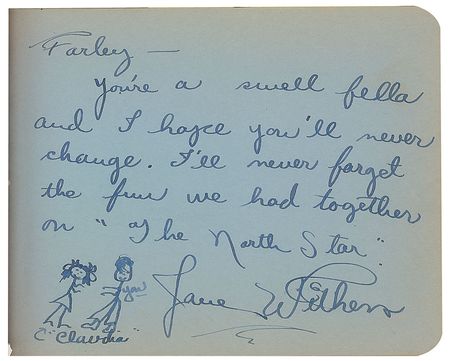 Farley —
You're a swell fella
and I hope you'll never
change. I'll never forget
the fun we had together
on "The North Star".
Jane Withers
you
"Claudia"